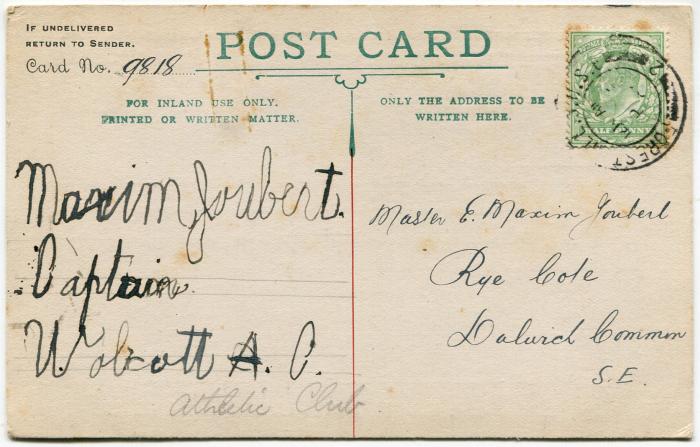 IF UNDELIVERED
RETURN TO SENDER.
Card No. 9818
POST CARD
FOR INLAND USE ONLY.
PRINTED OR WRITTEN MATTER.
ONLY THE ADDRESS TO BE
WRITTEN HERE.
HALFPENNY
FOREST
Maxim Joubert.
Captain
Wolcott A. C.
Athletic Club
Master E. Maxim Joubert
Rye Cote
Dulwich Common
S.E.